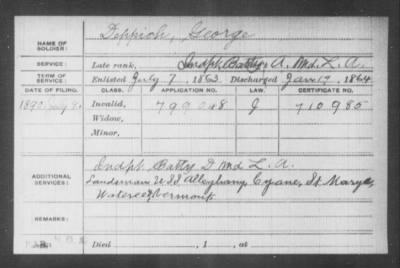 Deppich, George
NAME OF SOLDIER:
SERVICE: Late rank, Indpt. Batty, A. Md. L. A.
TERM OF SERVICE: Enlisted July 7, 1863. Discharged Jan. 19, 1864
DATE OF FILING. CLASS. APPLICATION NO. LAW. CERTIFICATE NO.
1890 July 9 Invalid, 799,048 J 710985
Widow,
Minor.
Indpt. Batty D Md L. A.
ADDITIONAL SERVICES: Landsman U.S.S Alleghany, Cyane, St. Marys,
Wateree, Vermont
REMARKS:
Died , 1 , at